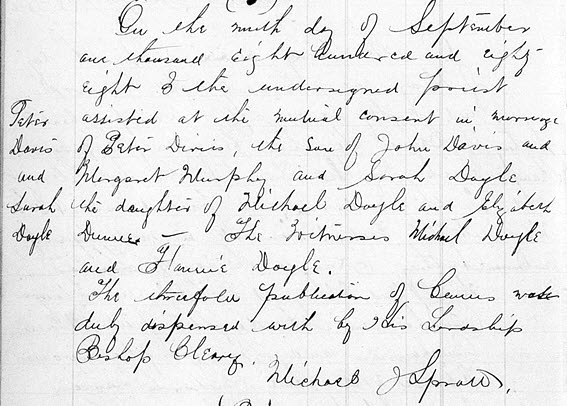 On the ninth day of September
one thousand eight hundred and eighty
eight I the undersigned priest
assisted at the mutual consent in marriage
Peter
Davis
and
Sarah
Doyle
of Peter Davis, the son of John Davis and
Margaret Murphy and Sarah Doyle
the daughter of Michael Doyle and Elizabeth
Dunne — The Witnesses Michael Doyle
and Fannie Doyle.
The threefold publication of Banns was
duly dispensed with by His Lordship
Bishop Cleary.
Michael J Spratt.